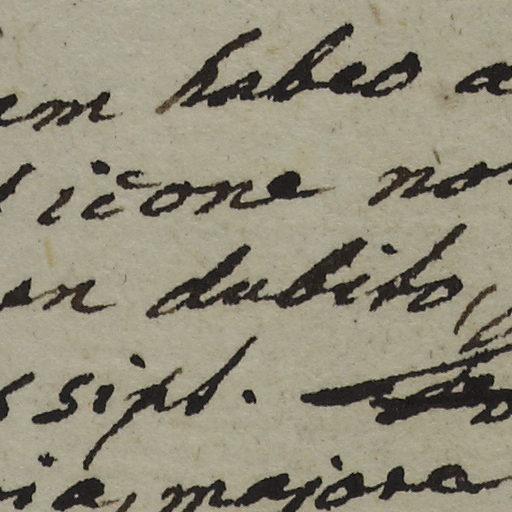 em habeo a
icone non
en dubito,
sipt.
ia, majora